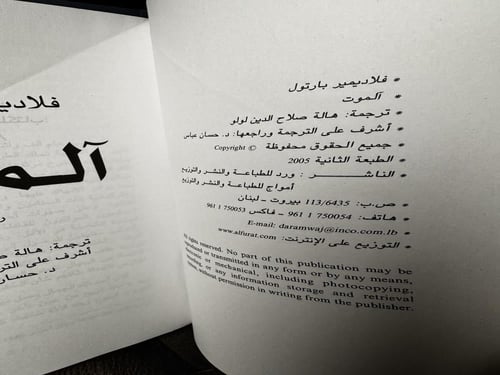 • فلاديمير بارتول
• آلموت
• ترجمة: هالة صلاح الدين لولو
• أشرف على الترجمة وراجعها: د. حسان عباس
• جميع الحقوق محفوظة © Copyright
• الطبعة الثانية 2005
• الناشــــر : ورد للطباعة والنشر والتوزيع
أمواج للطباعة والنشر والتوزيع
• ص.ب: 113/6435 بيروت ـ لبنان
• هاتف: 750054 1 961 ـ فاكس 750053 1 961
E-mail: daramwaj@inco.com.lb
• التوزيع على الإنترنت: www.alfurat.com
All rights reserved. No part of this publication may be
or transmitted in any form or by any means,
or mechanical, including photocopying,
or any information storage and retrieval
without permission in writing from the publisher.
فلاديمير
آلمـ
ترجمة: هالة
أشرف على الترجمة
د. حسان